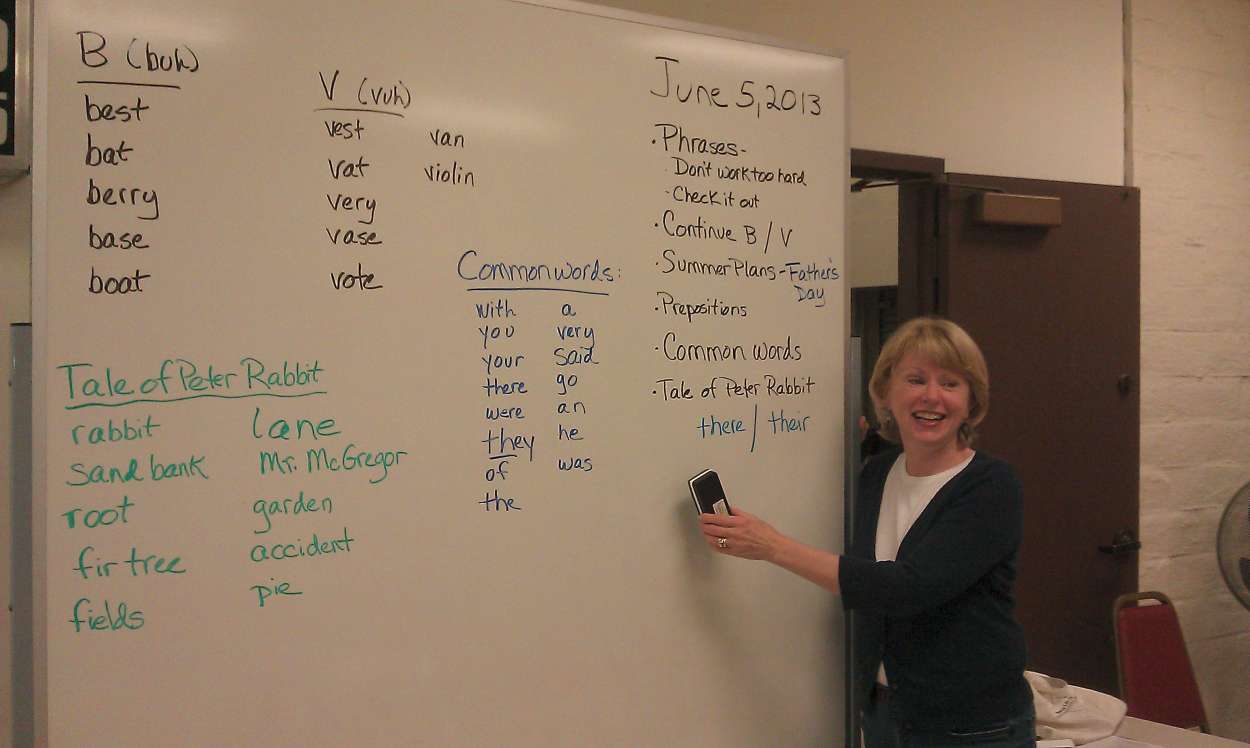 B (buh)
best
bat
berry
base
boat
V (vuh)
vest van
vat violin
very
vase
vote
Tale of Peter Rabbit
rabbit lane
sand bank Mr. McGregor
root garden
fir tree accident
fields pie
Common words:
with a
you very
your said
there go
were an
they he
of was
the
June 5, 2013
·Phrases-
·Don't work too hard
·Check it out
·Continue B / V
·Summer Plans - Father's
Day
·Prepositions
·Common words
·Tale of Peter Rabbit
there / their